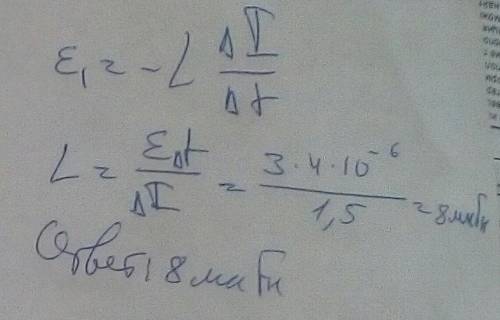 ε₁ = -L ΔI/Δt
L = εΔt/ΔI = 3·4·10⁻⁶/1,5 = 8мкГн
Ответ: 8мкГн